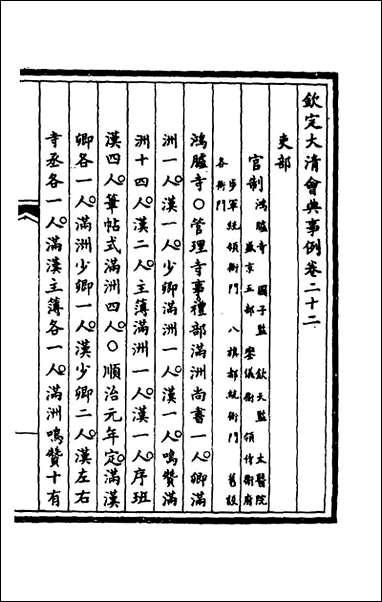 欽定大清會典事例卷二十二
吏部
官制鴻臚寺 國子監 欽天監 太醫院
盛京五部 鑾儀衛 領侍衛府
步軍統領衙門 八旗都統衙門 舊設
各衙門
鴻臚寺○管理寺事禮部滿洲尚書一人。卿滿
洲一人。漢一人。少卿滿洲一人。漢一人。鳴贊滿
洲十四人。漢二人。主簿滿洲一人。漢一人。序班
漢四人。筆帖式滿洲四人。○順治元年定。滿漢
卿各一人。滿洲少卿一人。漢少卿二人。漢左右
寺丞各一人。滿漢主簿各一人。滿洲鳴贊十有